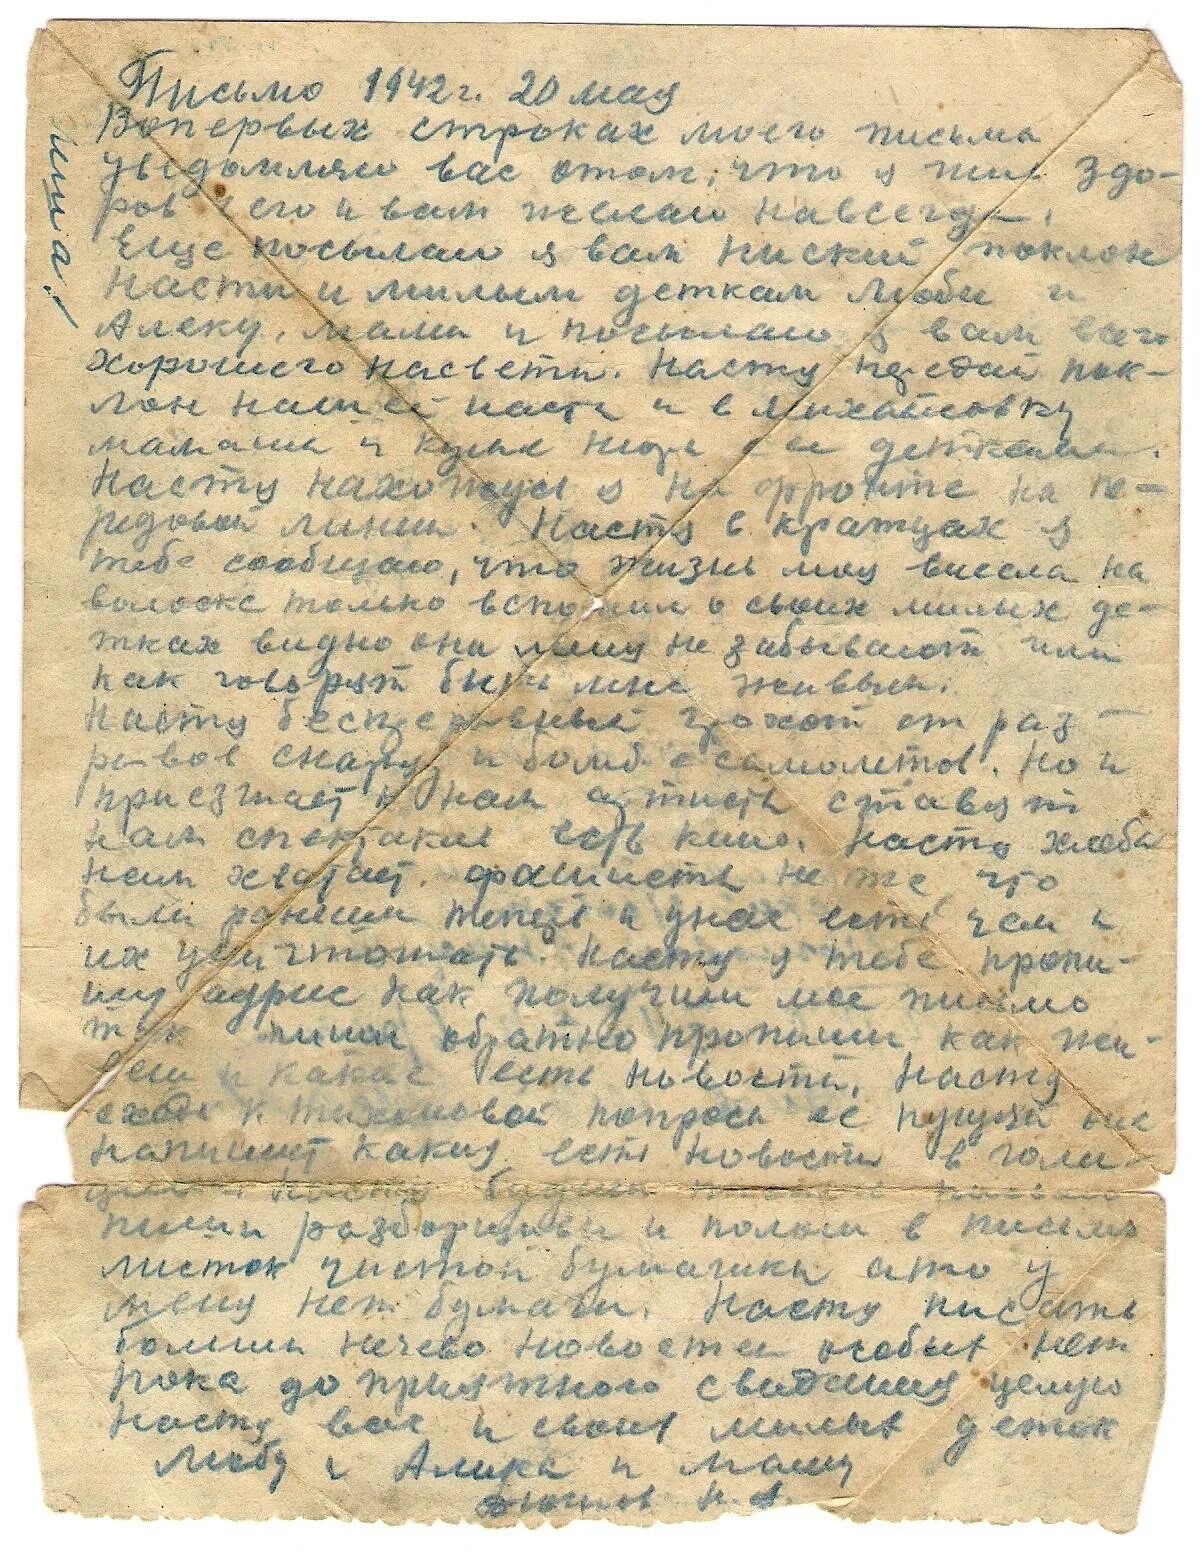 Письмо 1942 г. 20 мая
Вопервых строках моего письма
уведомляю вас отом, что я жив здо-
ров чего и вам желаю навсегда.
Еще посылаю я вам ниский поклон
Насти и милым деткам Люби и
Алеку, мами и посылаю я вам всего
хорошего насвети. Настя передай пок-
лон нашей насти и в Михайловку
мамаши и
детками.
Настя нахожусь я на фронте на пе-
редовой линии. Настя в кратцах я
тебе сообщаю, что жизнь моя висела на
волоске только вспомнил о своих милых де-
тках видно они меня не забывают или
как говорят быть мне живым.
Настя бесперервный грохот от раз-
рывов снаряд и бомб с самолетов. Но и
приезжает к нам артисты ставят
нам спектакли есть кино. Настя хлеба
нам хватает. Фашисты не те что
были раньши теперь и унас есть чем и
их уничтожать. Настя я тебе пропи-
шу адрис как получиш мое письмо
так обратно пропиши как жи-
веш и какие есть новости. Настя
сходи к Тихоновой попроси ее пущай она
напишит какия есть новости в голи-
Настя будиш
пиши разборчиви и положи в письмо
листок чистой бумашки ато у
меня нет бумаги. Настя писать
больши нечево новостей особых нет
Пока до приятного свидания целую
Настя вас и своих милых деток
Любу и Алика и Машу
Н. А.